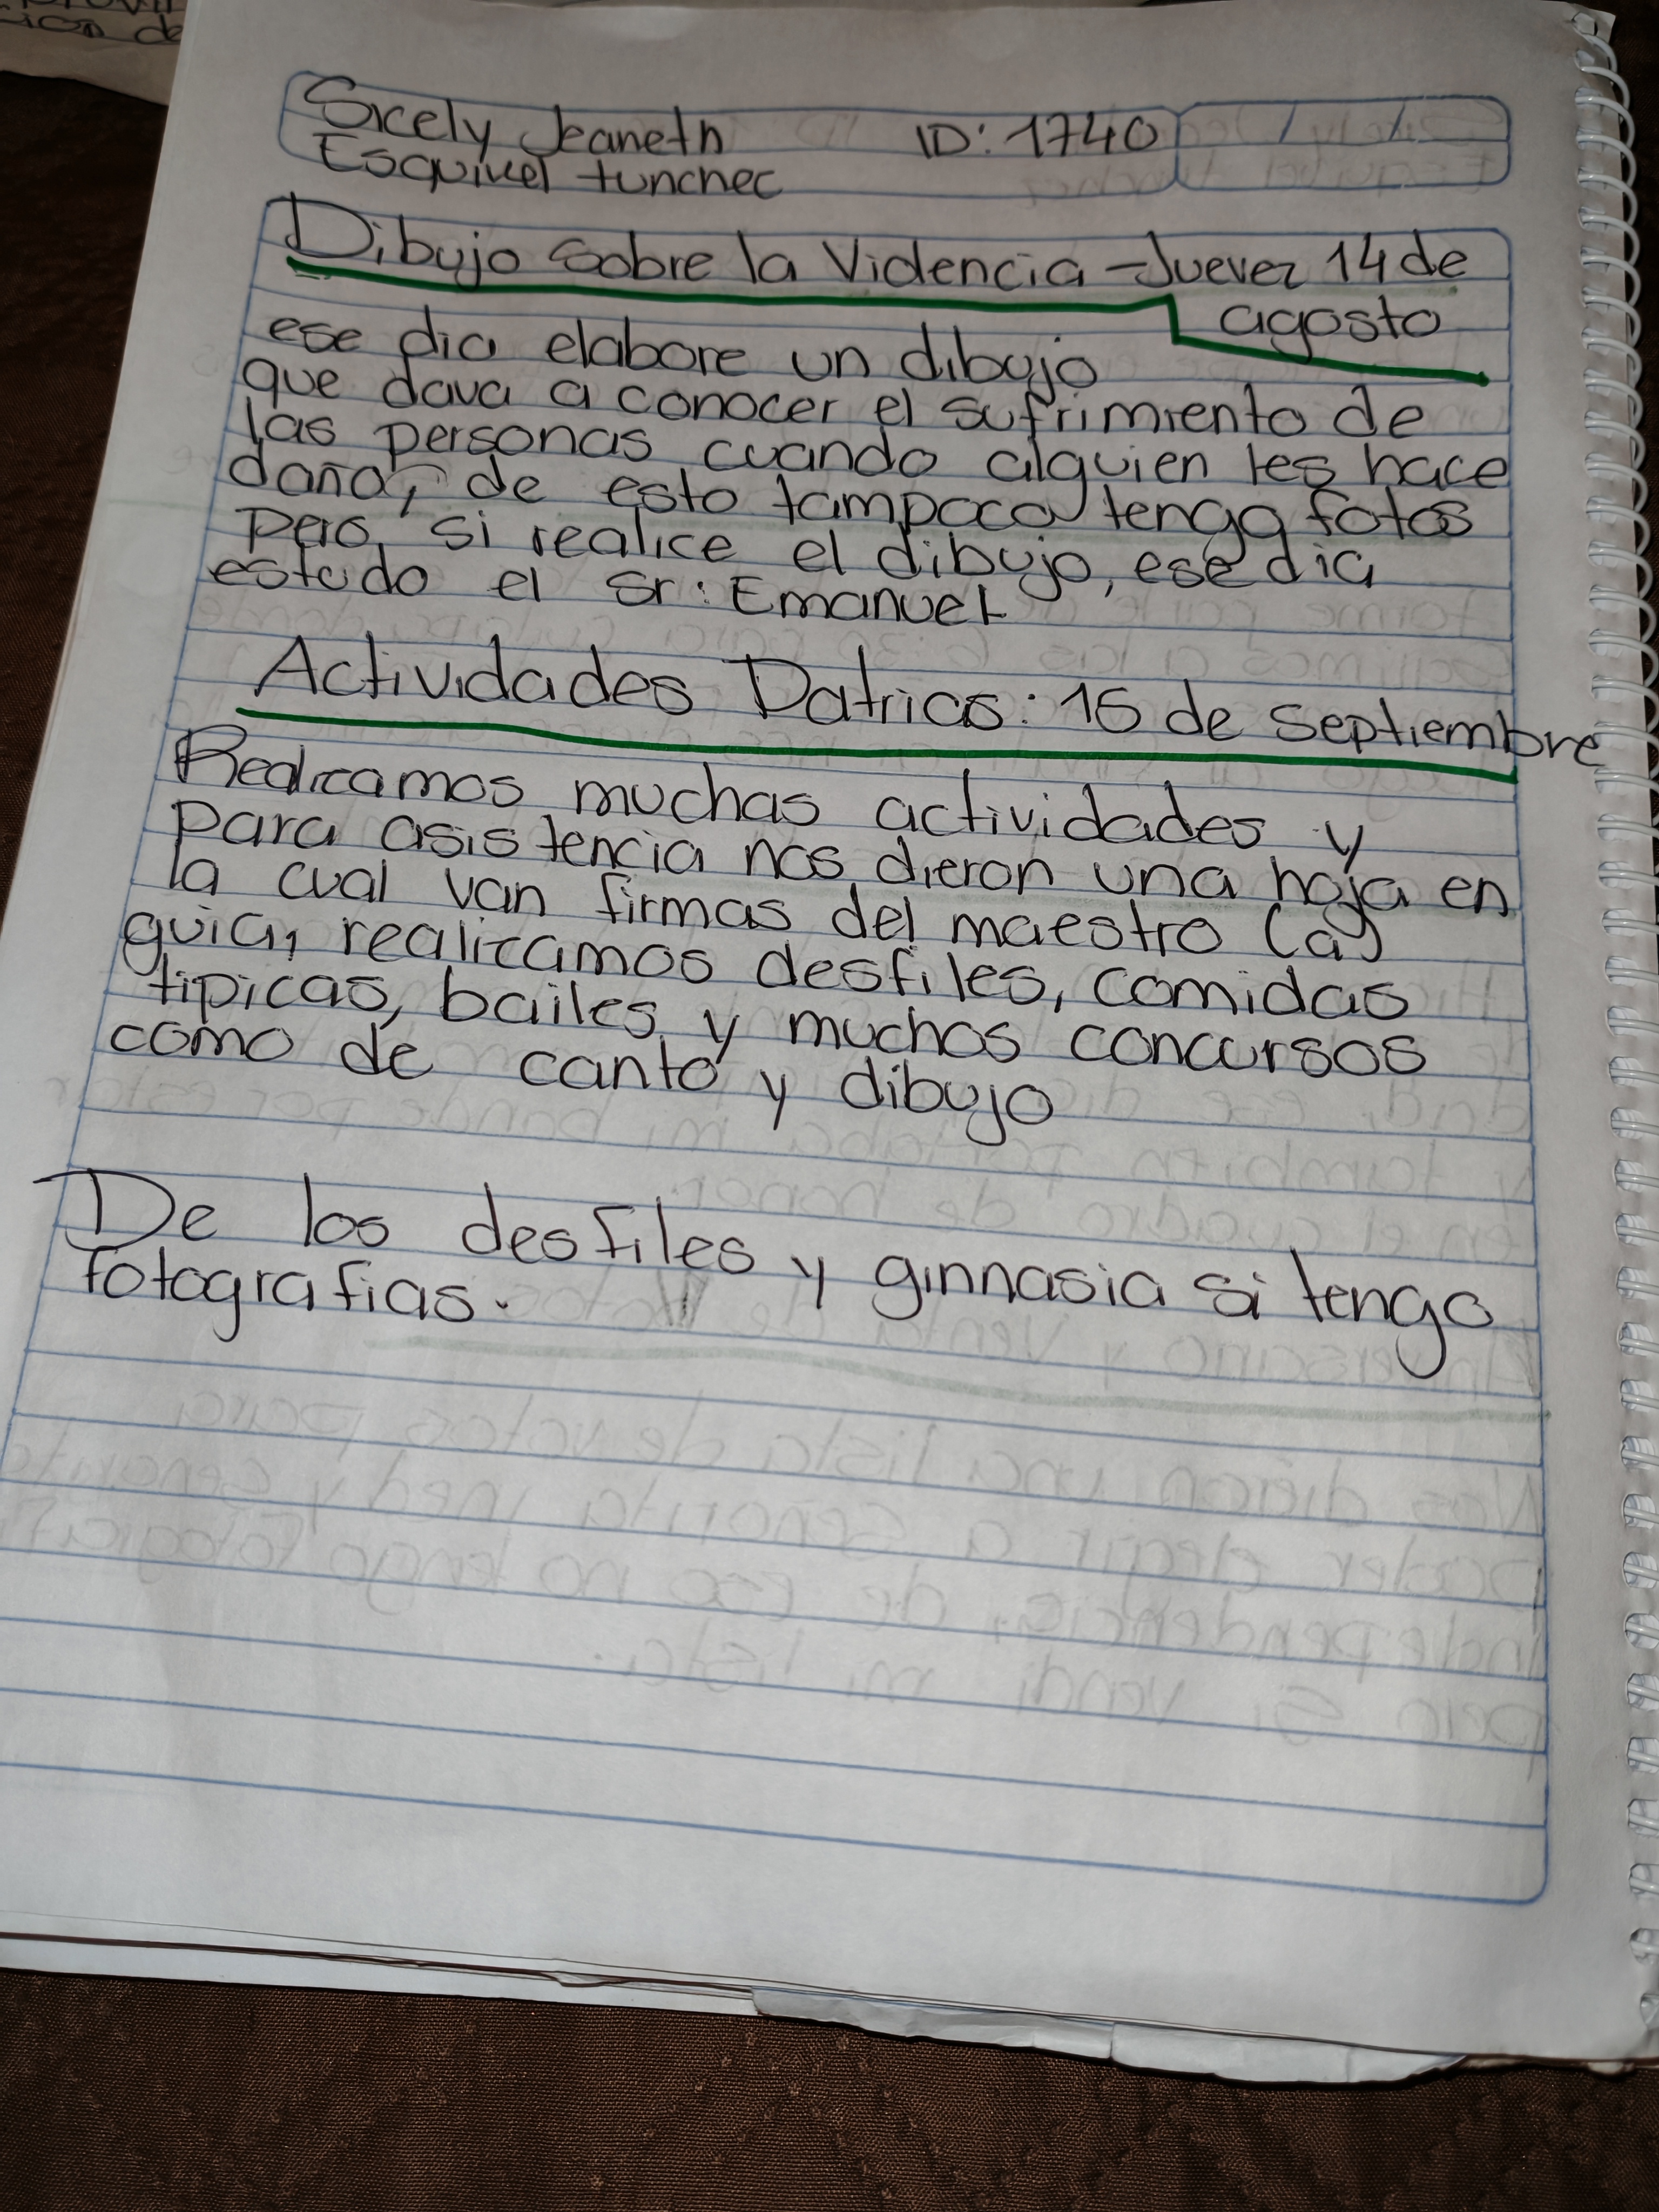 Sicely Jeaneth ID: 1740
Esquivel tunchec
Dibujo sobre la Violencia - Juevez 14 de
agosto
ese dia elabore un dibujo
que dava a conocer el sufrimiento de
las personas cuando alguien les hace
daño, de esto tampoco tengo fotos
pero, si realice el dibujo, ese dia
estudo el sr: Emanuel
Actividades Patrias: 15 de septiembre
Realizamos muchas actividades y
para asistencia nos dieron una hoja en
la cual van firmas del maestro (a)
guia, realizamos desfiles, comidas
tipicas, bailes y muchos concursos
como de canto y dibujo
De los desfiles y ginnasia si tengo
fotografias.